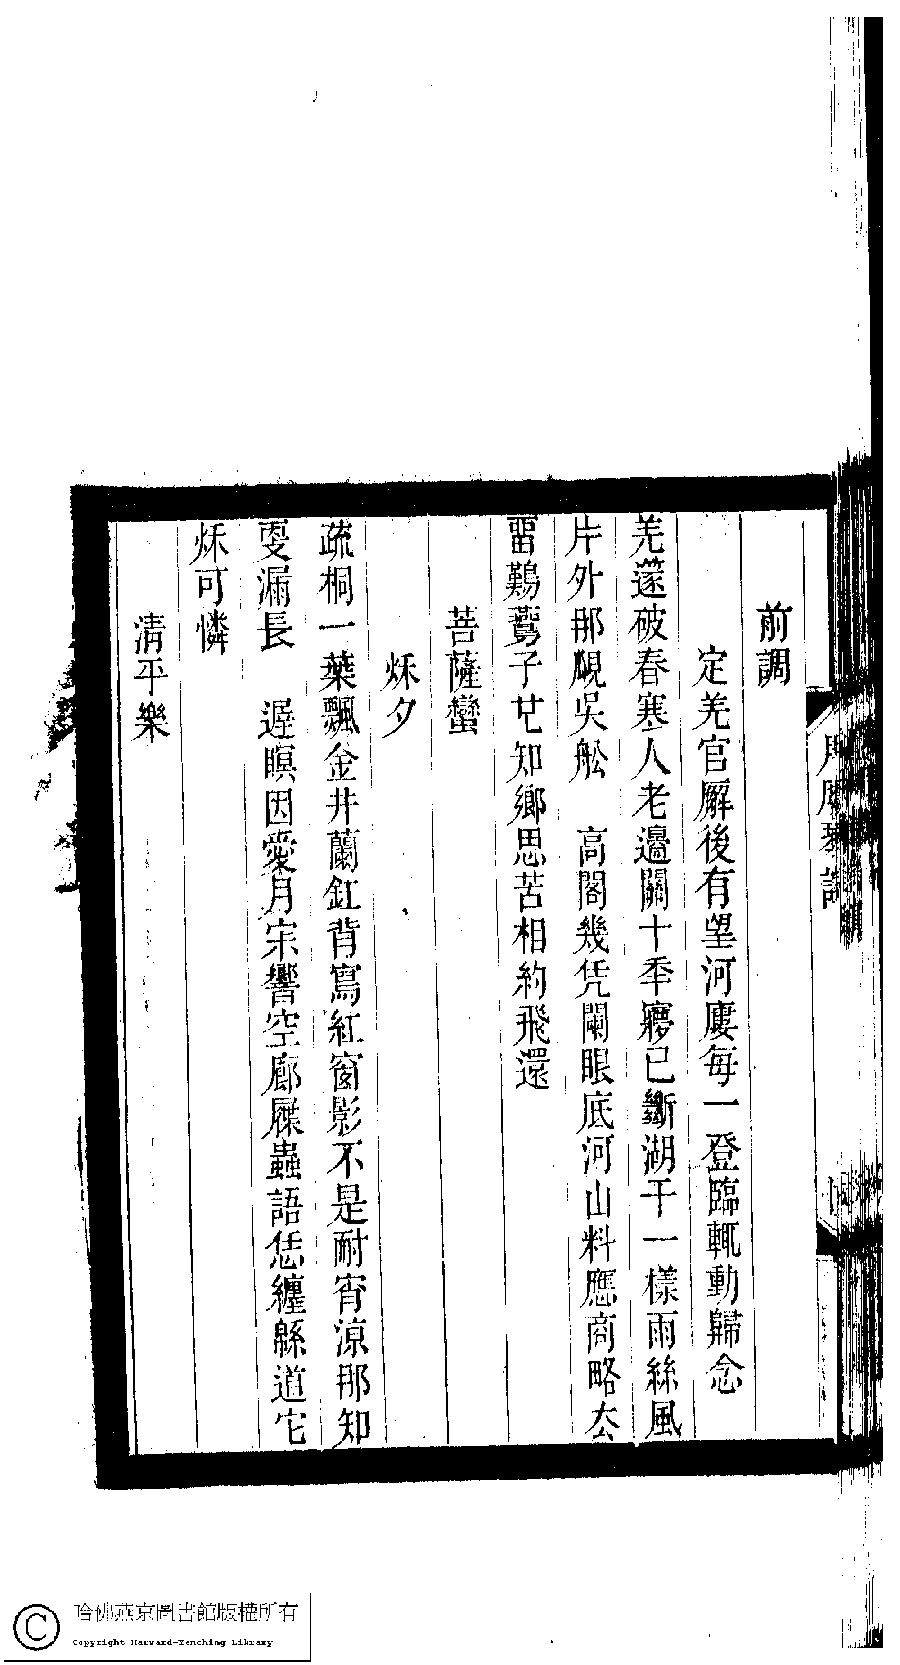 前調
定羌官廨後有望河廔每一登臨輒動歸念
羌篴破春寒人老邊關十秊㝱已斷湖干一樣雨絲風
片外那覷吳舩　高閣幾凭闌眼底河山料應商略厺
畱難鷰子廿知鄉思苦相約飛還
菩薩蠻
秌夕
疏桐一葉飄金井蘭釭背寫紅窗影不是耐宵涼那知
叓漏長　遲瞑因愛月宋響空廊屧蟲語恁纏緜道它
秌可憐
清平樂
哈佛燕京圖書館版權所有
Copyright Harvard-Yenching Library